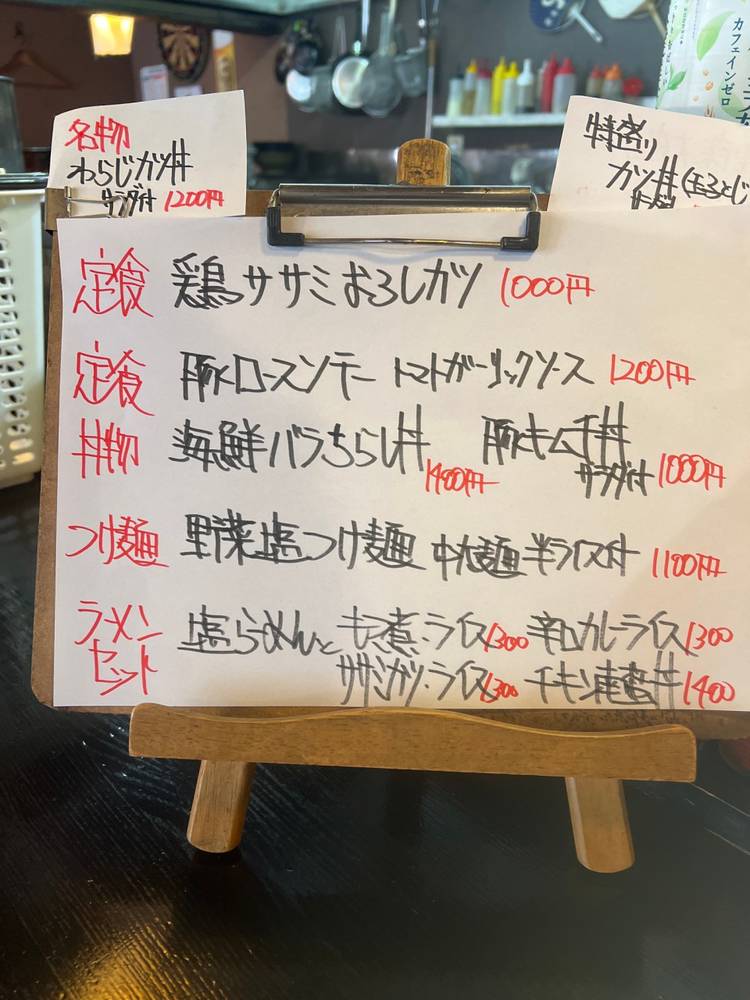 名物
わらじカツ丼
サラダ付 1200円
特盛り
カツ丼(玉ろとじ
カフェインゼロ
定食 鶏ササミおろしカツ 1000円
定食 豚ロースソテー トマトガーリックソース 1200円
丼物 海鮮バラちらし丼 1400円 豚キムチ丼 サラダ付 1000円
つけ麺 野菜塩つけ麺 中太麺 半ライス付 1100円
ラーメン セット 塩らーめんと もつ煮・ライス 1300 辛口カレーライス 1300
ササミカツ・ライス 1300 チキン南蛮丼 1400